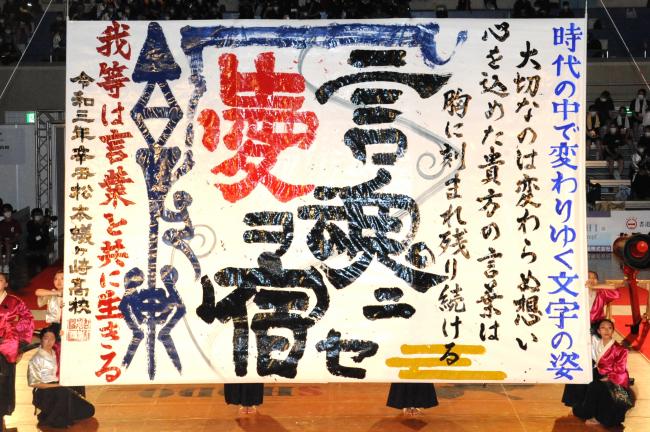 時代の中で変わりゆく文字の姿
大切なのは変わらぬ想い
心を込めた貴方の言葉は
胸に刻まれ残り続ける
言魂ニ
愛ヲ宿セ
我等は言葉と共に生きる
令和三年辛丑松本蟻ヶ崎高校